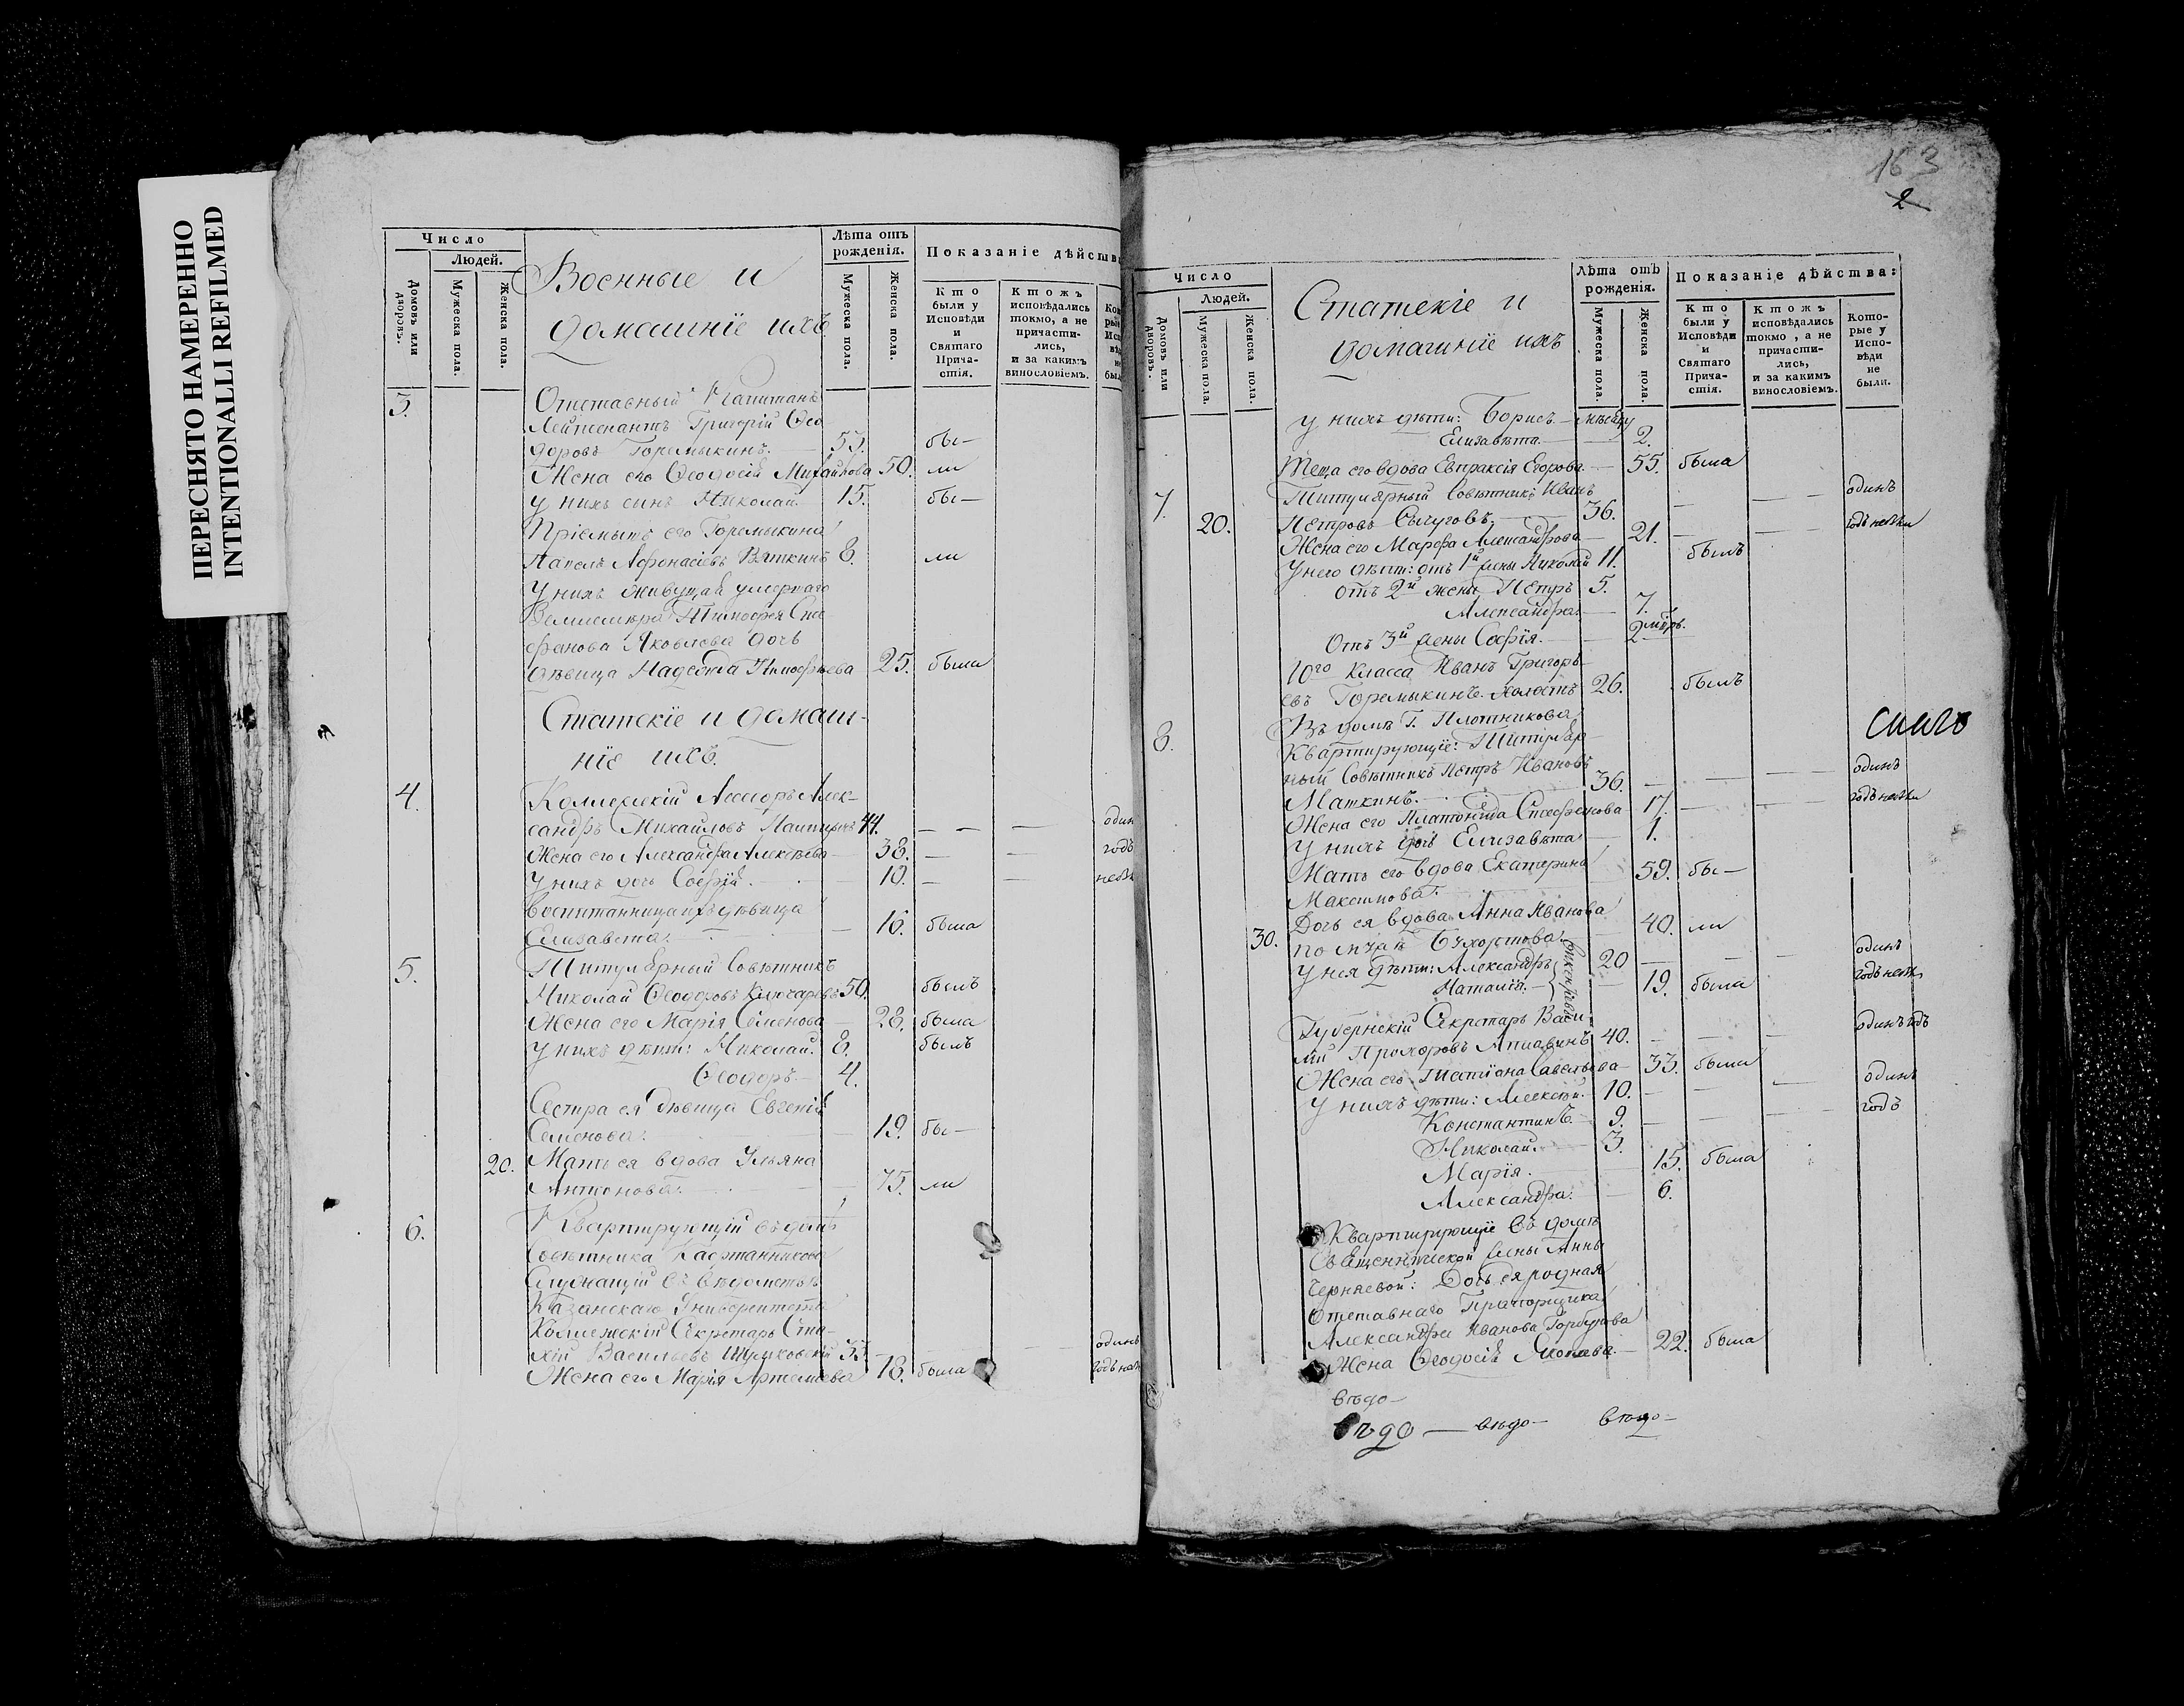 ПЕРЕСНЯТО НАМЕРЕННО
INTENTIONALLI REFILMED
Число
Людей.
Домовъ или дворовъ.
Мужеска пола.
Женска пола.
Военные и
домашніе ихъ
Лѣта отъ рожденія.
Мужеска пола.
Женска пола.
Показаніе дѣйств
Кто были у Исповѣди и Святаго Прича-стія.
Ктожъ исповѣдались токмо, а не причасти-лись, и за какимъ винословіемъ.
3.
Отставный Капитанъ
Лейтенантъ Григорій Ѳео
доровъ Горемыкинъ. 53. бы—
Жена его Ѳеодосія Михайлова 50. ли
у нихъ сынъ Николай. 15. бы—
Пріемышъ его Горемыкина
Павелъ Аѳонасіевъ Вяткинъ 8. ли
У нихъ живущая умершаго
Тимоѳея Сте
фанова Яковлева дочь
дѣвица Надежда Тимоѳеева 25. была
Статскіе и домаш-
ніе ихъ.
4. Коллежскій Ассесоръ Алек-
сандръ Михайловъ 44. — — — один
Жена его Александра Алексѣева 38. — — годъ
у нихъ дочь Софія. 10. — —
Воспитанница ихъ дѣвица
Елизавета. 16. была
5. Титулярный Совѣтникъ
Николай Ѳеодоровъ Ключаревъ 50. былъ
Жена его Марія Семенова 28. была
у нихъ дѣти: Николай. 8. былъ
Ѳеодоръ. 4.
Сестра ея дѣвица Евгенія
Семенова. 19. бы—
20. Мать ея вдова Ульяна
Антонова. 75. ли
6. Квартирующій въ домѣ
Совѣтника Кафтанникова
Служащій въ вѣдомствѣ
Казанскаго Университета
Коллежскій Секретарь Ста-
хій Васильевъ 33. — — одинъ
Жена его Марія Артемьева 18. была
163
2
Число
Людей.
Домовъ или дворовъ.
Мужеска пола.
Женска пола.
Статскіе и
домашніе ихъ
Лѣта отъ рожденія.
Мужеска пола.
Женска пола.
Показаніе дѣйства:
Кто были у Исповѣди и Святаго Прича-стія.
Ктожъ исповѣдались токмо, а не причасти-лись, и за какимъ винословіемъ.
Кото-рые у Испо-вѣди не были.
у нихъ дѣти: Борисъ.
Елизавѣта. 2.
Теща его вдова Евпраксія Егорова. 55. была
7. Титулярный Совѣтникъ Иванъ
20. Петровъ Сычуговъ. 36. — — одинъ
Жена его Марфа Александрова 21. — —
У него дѣти: отъ 1й жены Николай 11. былъ
отъ 2й жены Петръ 5.
Александра. 7.
Отъ 3й жены Софія. 2
10го класса Иванъ Григорь-
евъ Горемыкинъ. холостъ 26. былъ
8. Въ домѣ Г. Плотникова
Квартирующіе: Титуляр-
ный Совѣтникъ Петръ Ивановъ
Маткинъ. 36. — — одинъ
Жена его Платонида Стефанова 17. — —
У нихъ дочь Елизавѣта 1.
Мать его вдова Екатерина
Максимова. 59. бы—
Дочь ея вдова Анна Иванова
30. 40. ли
У нея дѣти: Александръ 20 — — одинъ
Наталія. 19. была
Губернскій Секретарь Васи-
лій Прохоровъ 40. — — одинъ годъ
Жена его Татіана Савельева 33. была
У нихъ дѣти: Алексѣй. 10. — — одинъ
Константинъ. 9. — — годъ
Николай. 3.
Марія. 15. была
Александра. 6.
Квартирующіе въ домѣ
Священнической жены Анны
Черняевой: Дочь ея родная
Отставнаго Прапорщика
Александра Иванова Горбунова
Жена Ѳеодосія 22. была
вѣдо—
вѣдо — вѣдо— вѣдо—